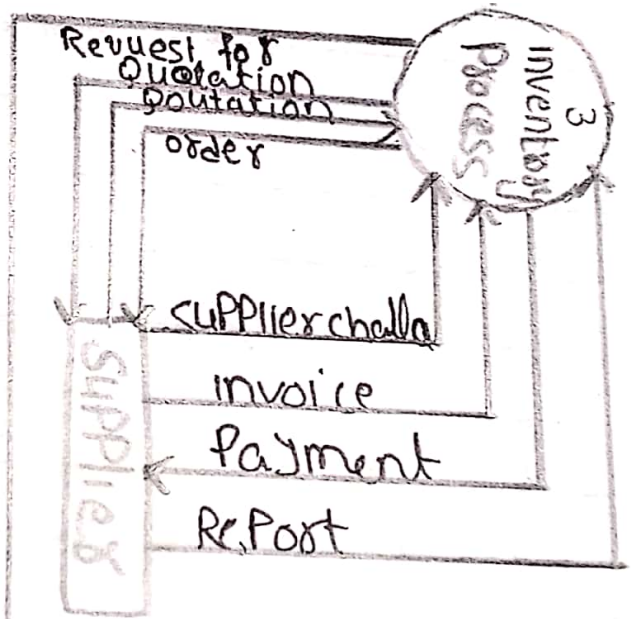 Revuest for
Quotation
Qoutation
order
3
inventory
Process
supplier challa
invoice
Payment
Report
Supplier